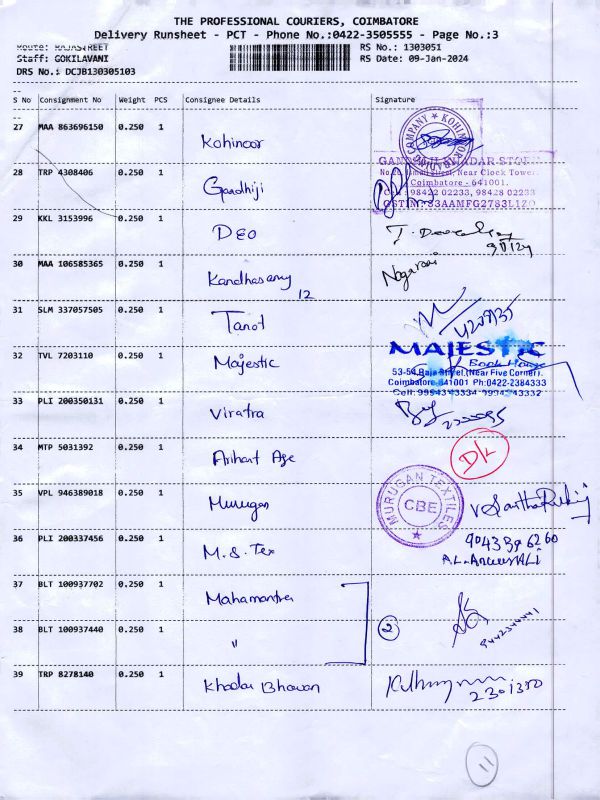 THE PROFESSIONAL COURIERS, COIMBATORE
Delivery Runsheet - PCT - Phone No.:0422-3505555 - Page No.:3
Route: RAJASTREET
RS No.: 1303051
Staff: GOKILAVANI
RS Date: 09-Jan-2024
DRS No.: DCJB130305103
S No Consignment No Weight PCS Consignee Details Signature
27 MAA 863696150 0.250 1 Kohinoor
28 TRP 4308406 0.250 1 Gandhiji
Near Clock Tower,
Coimbatore - 641001.
98422 02233, 98428 02233
GSTIN:33AAMFG2783L1ZO
29 KKL 3153996 0.250 1 DEO
30 MAA 106585365 0.250 1 Kandhasamy Nagaraj
12
31 SLM 337057505 0.250 1 Tanot
32 TVL 7203110 0.250 1 Majestic
MAJESTIC
Book House
53-54, Raja Street, (Near Five Corner).
Coimbatore-641001 Ph:0422-2384333
33 PLI 200350131 0.250 1 Viratra
34 MTP 5031392 0.250 1 Arihant Age
35 VPL 946389018 0.250 1 Murugan
MURUGAN TEXTILES
CBE
36 PLI 200337456 0.250 1 M.S. Tex
37 BLT 100937702 0.250 1 Mahamantra
38 BLT 100937440 0.250 1 " 2
39 TRP 8278140 0.250 1 Khadar Bhavan
11